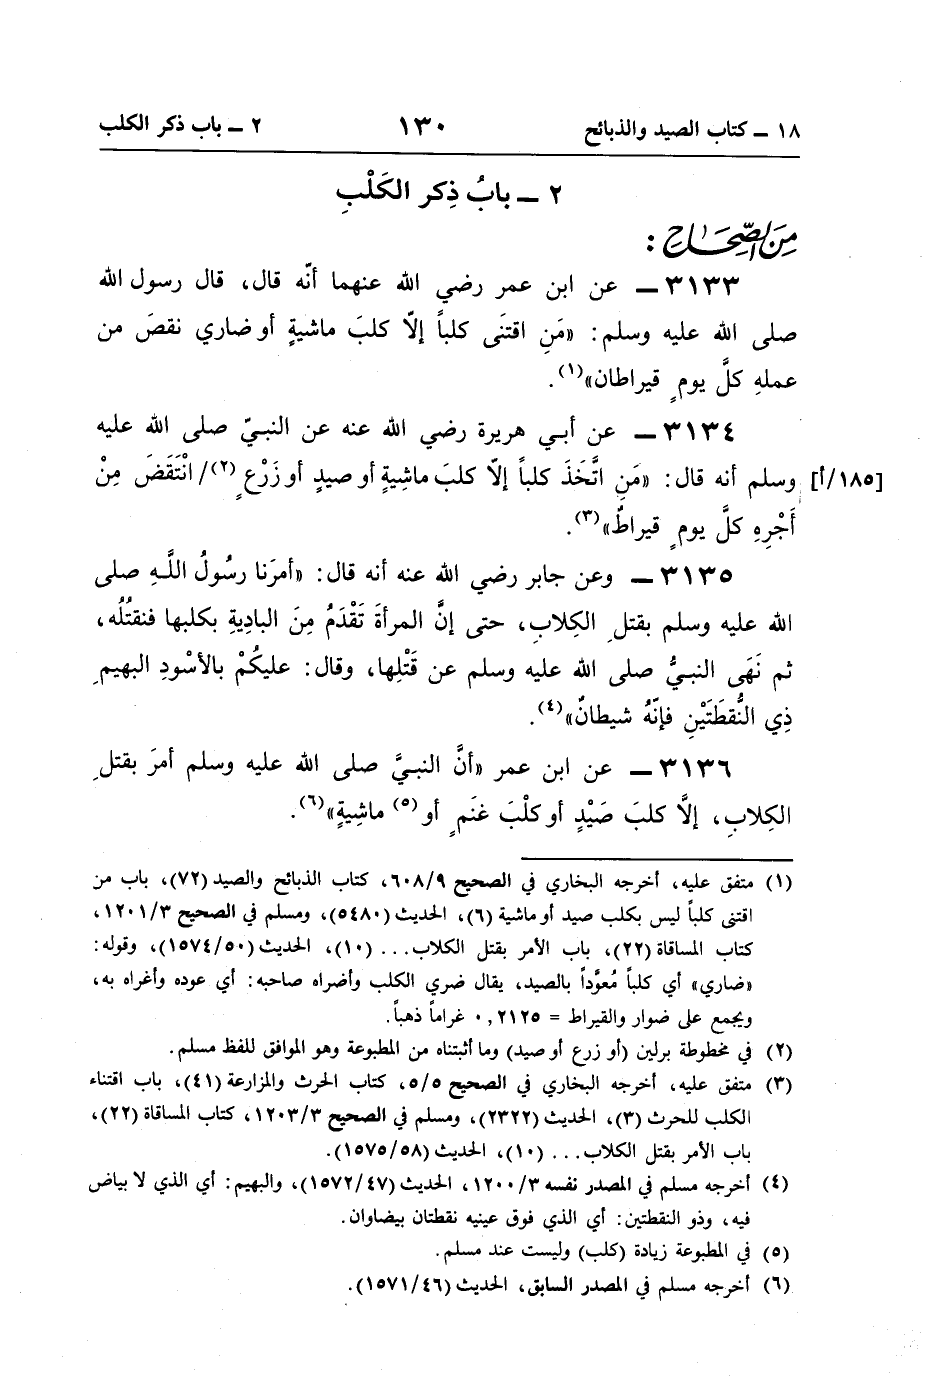 ١٨ ــ كتاب الصيد والذبائح ١٣٠ ٢ ــ باب ذكر الكلب
٢ ــ بابُ ذِكر الكَلْبِ
مِنَ الصِّحَاحِ :
٣١٣٣ ــ عن ابن عمر رضي الله عنهما أنّه قال، قال رسول الله
صلى الله عليه وسلم: «مَنِ اقتنَى كلباً إلّا كلبَ ماشيةٍ أو ضاري نقصَ من
عملهِ كلَّ يومٍ قيراطان»(١).
٣١٣٤ ــ عن أبي هريرة رضي الله عنه عن النبيّ صلى الله عليه
[١٨٥/أ] وسلم أنه قال: «مَنِ اتَّخَذَ كلباً إلّا كلبَ ماشِيةٍ أو صيدٍ أو زَرْعٍ(٢)/ انْتَقَصَ مِنْ
أَجْرِهِ كلَّ يومٍ قيراطٌ»(٣).
٣١٣٥ ــ وعن جابر رضي الله عنه أنه قال: «أمرَنا رسُولُ اللَّهِ صلى
الله عليه وسلم بقتلِ الكِلابِ، حتى إنَّ المرأةَ تَقْدَمُ مِنَ البادِيةِ بكلبها فنقتُلُه،
ثم نَهَى النبيُّ صلى الله عليه وسلم عن قَتْلِها، وقال: عليكُمْ بالأسْودِ البهيمِ
ذِي النُّقطَتَيْنِ فإنَّهُ شيطانٌ»(٤).
٣١٣٦ ــ عن ابن عمر «أنَّ النبيَّ صلى الله عليه وسلم أمرَ بقتلِ
الكِلابِ، إلَّا كلبَ صَيْدٍ أو كلْبَ غنَمٍ أو(٥) ماشِيةٍ»(٦).
(١) متفق عليه، أخرجه البخاري في الصحيح ٦٠٨/٩، كتاب الذبائح والصيد (٧٢)، باب من
اقتنى كلباً ليس بكلب صيد أو ماشية (٦)، الحديث (٥٤٨٠)، ومسلم في الصحيح ١٢٠١/٣،
كتاب المساقاة (٢٢)، باب الأمر بقتل الكلاب... (١٠)، الحديث (١٥٧٤/٥٠)، وقوله:
«ضاري» أي كلباً مُعوَّداً بالصيد، يقال ضري الكلب وأضراه صاحبه: أي عوده وأغراه به،
ويجمع على ضوار والقيراط = ٠,٢١٢٥ غراماً ذهباً.
(٢) في مخطوطة برلين (أو زرع أو صيد) وما أثبتناه من المطبوعة وهو الموافق للفظ مسلم.
(٣) متفق عليه، أخرجه البخاري في الصحيح ٥/٥، كتاب الحرث والمزارعة (٤١)، باب اقتناء
الكلب للحرث (٣)، الحديث (٢٣٢٢)، ومسلم في الصحيح ١٢٠٣/٣، كتاب المساقاة (٢٢)،
باب الأمر بقتل الكلاب... (١٠)، الحديث (١٥٧٥/٥٨).
(٤) أخرجه مسلم في المصدر نفسه ١٢٠٠/٣، الحديث (١٥٧٢/٤٧)، والبهيم: أي الذي لا بياض
فيه، وذو النقطتين: أي الذي فوق عينيه نقطتان بيضاوان.
(٥) في المطبوعة زيادة (كلب) وليست عند مسلم.
(٦) أخرجه مسلم في المصدر السابق، الحديث (١٥٧١/٤٦).